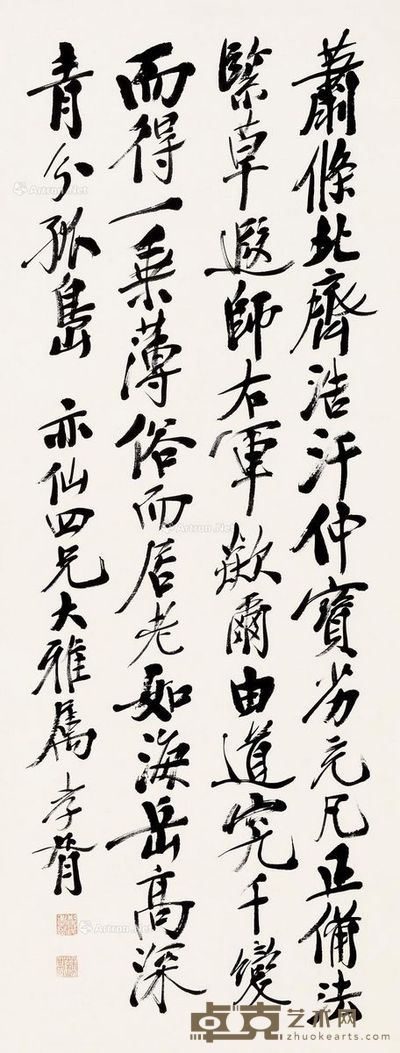 蕭條北齊浩汗仲寶劣克凡正備法
緊草遐師右軍欻爾由道究千變
而得一乗薄俗而居老如海岳高深
青分孤島 亦仙四兄大雅屬 孝胥
Artron.Net
卓克艺术网
www.zhuokearts.com